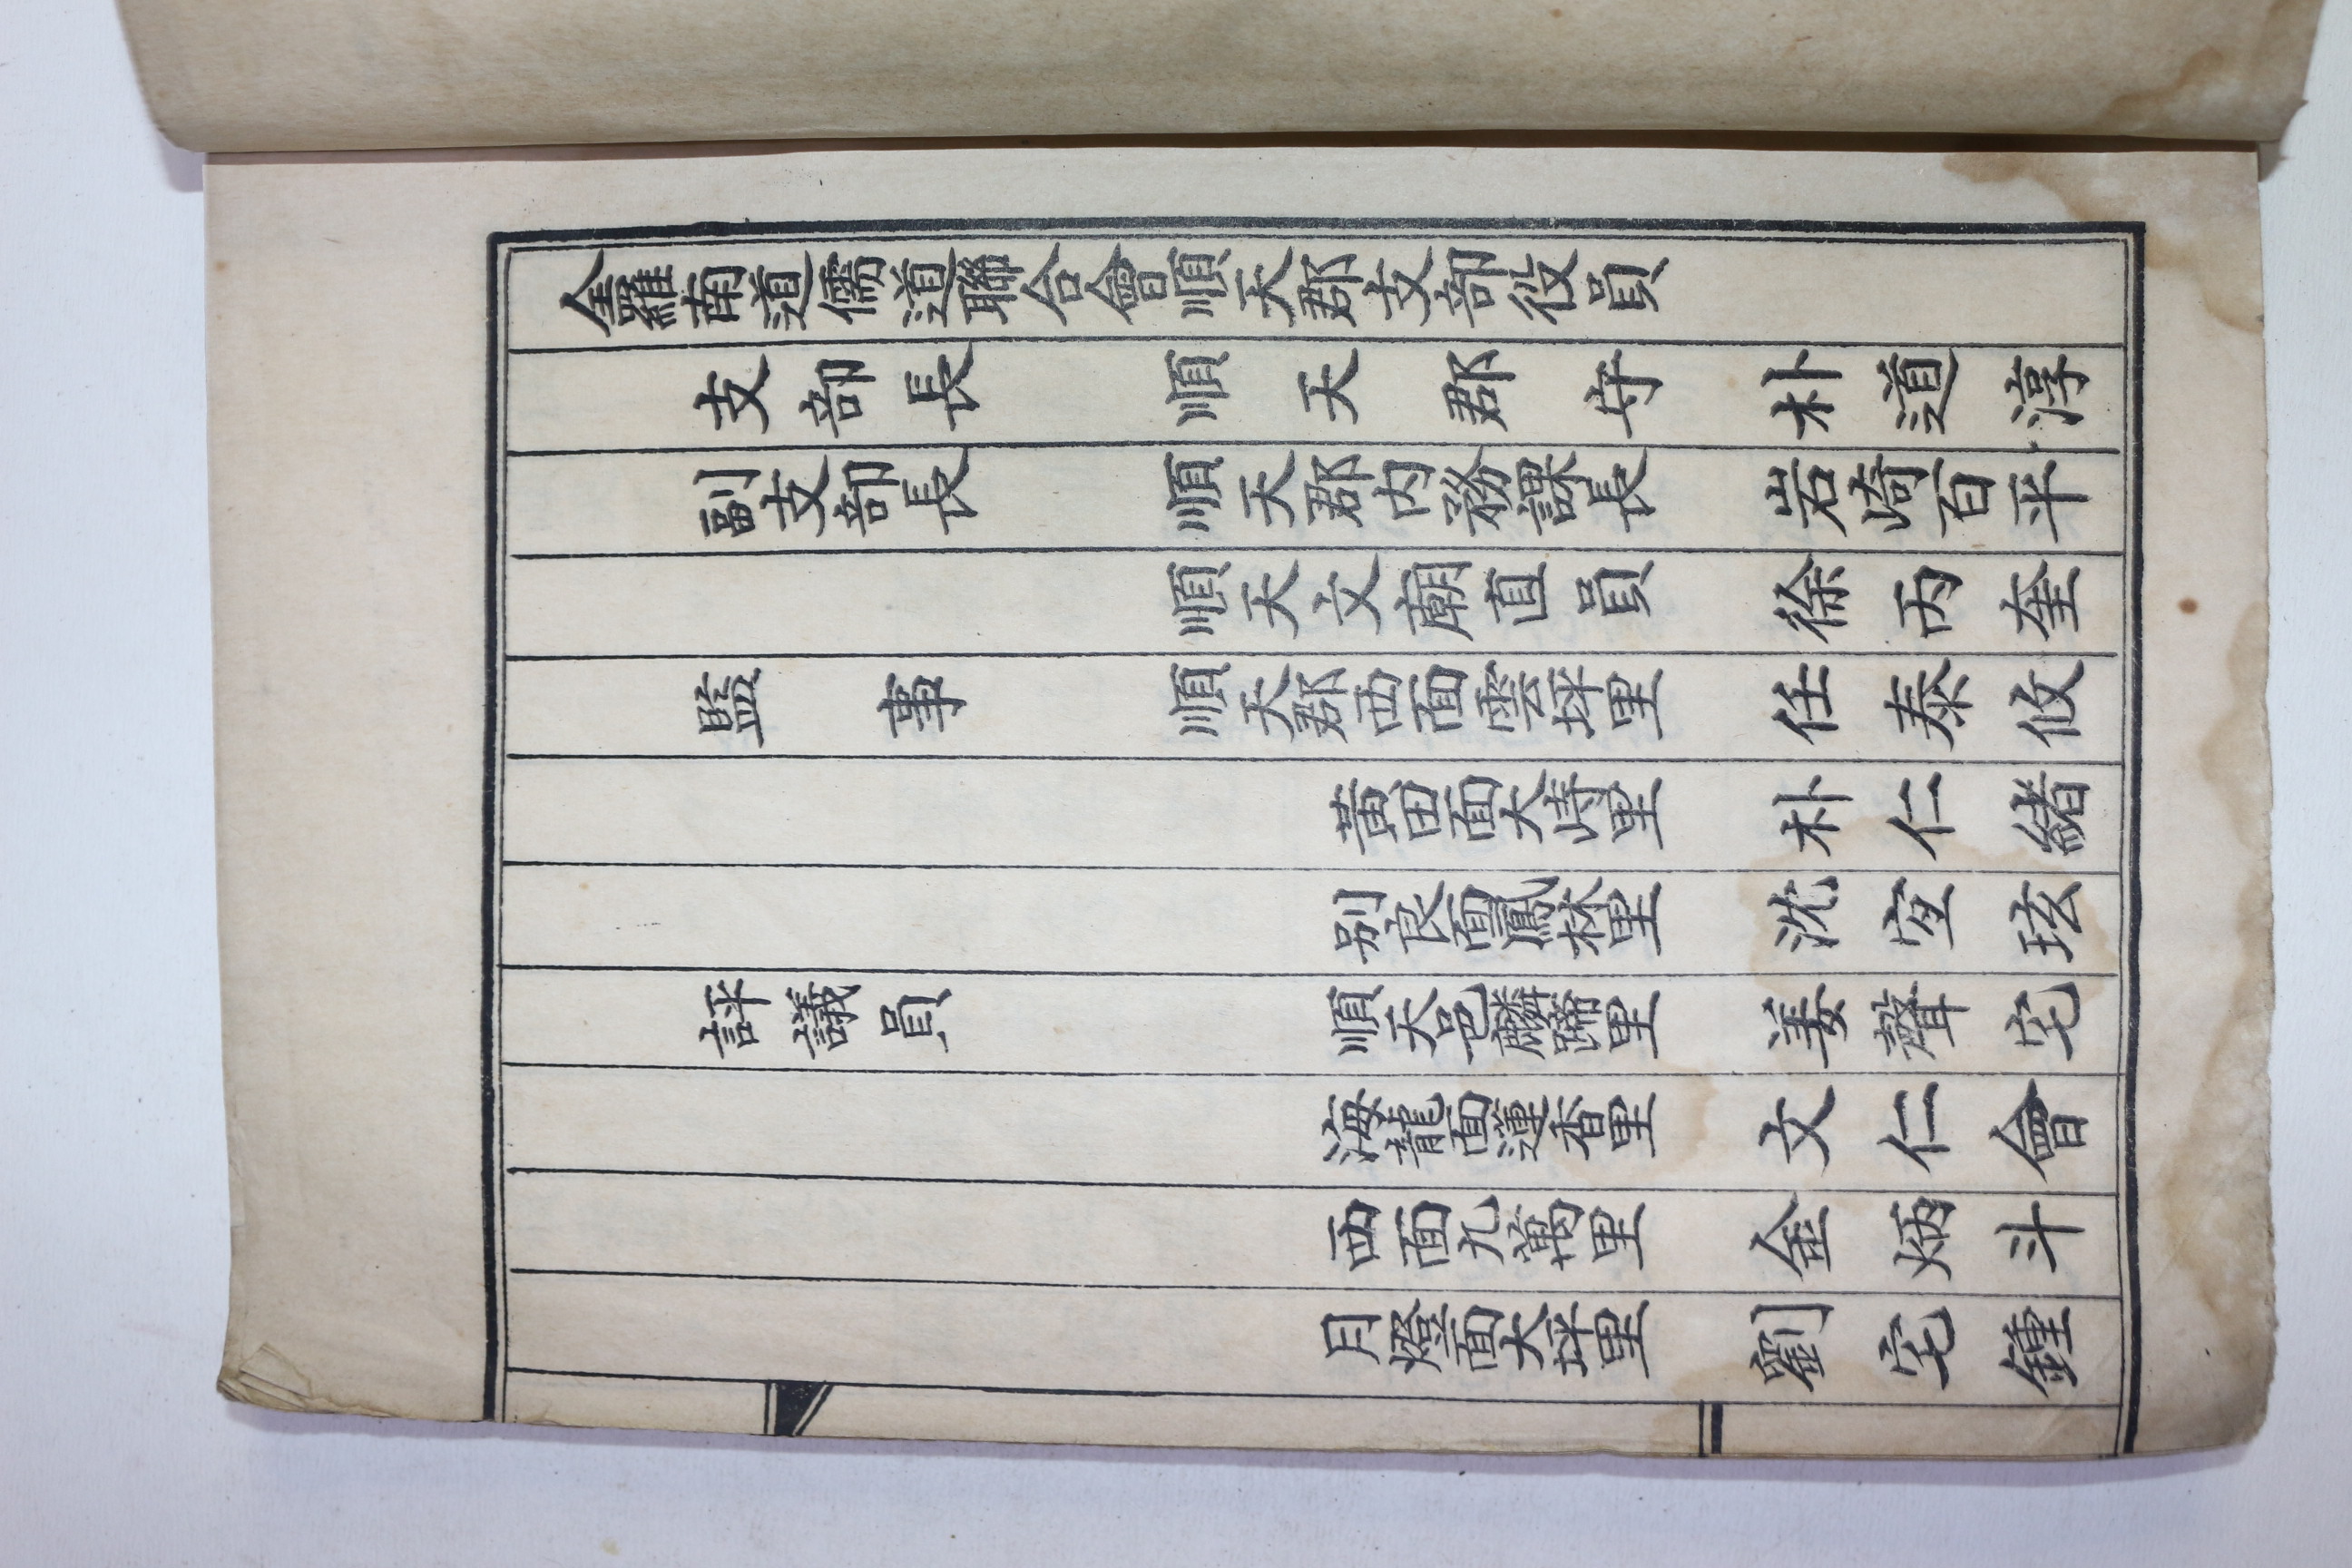 全羅南道儒道聯合會順天郡支部役員
支部長 順天郡守 朴道淳
副支部長 順天郡内務課長 岩崎百平
順天文廟直員 徐丙奎
監事 順天郡西面雲坪里 任泰攸
黃田面大峙里 朴仁緖
别良面鳳林里 沈宜玹
評議員 順天邑麟蹄里 姜聲宅
海龍面蓮香里 文仁會
西面九萬里 金炳斗
月燈面大坪里 劉宅鍾